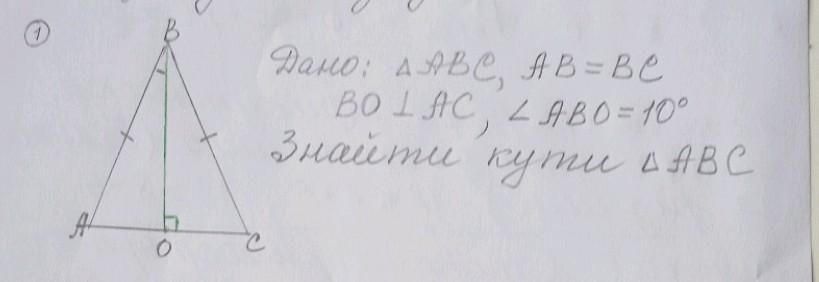 1
B
Дано: △ABC, AB = BC
BO ⊥ AC, ∠ABO = 10°
Знайти кути △ABC
A
O
C